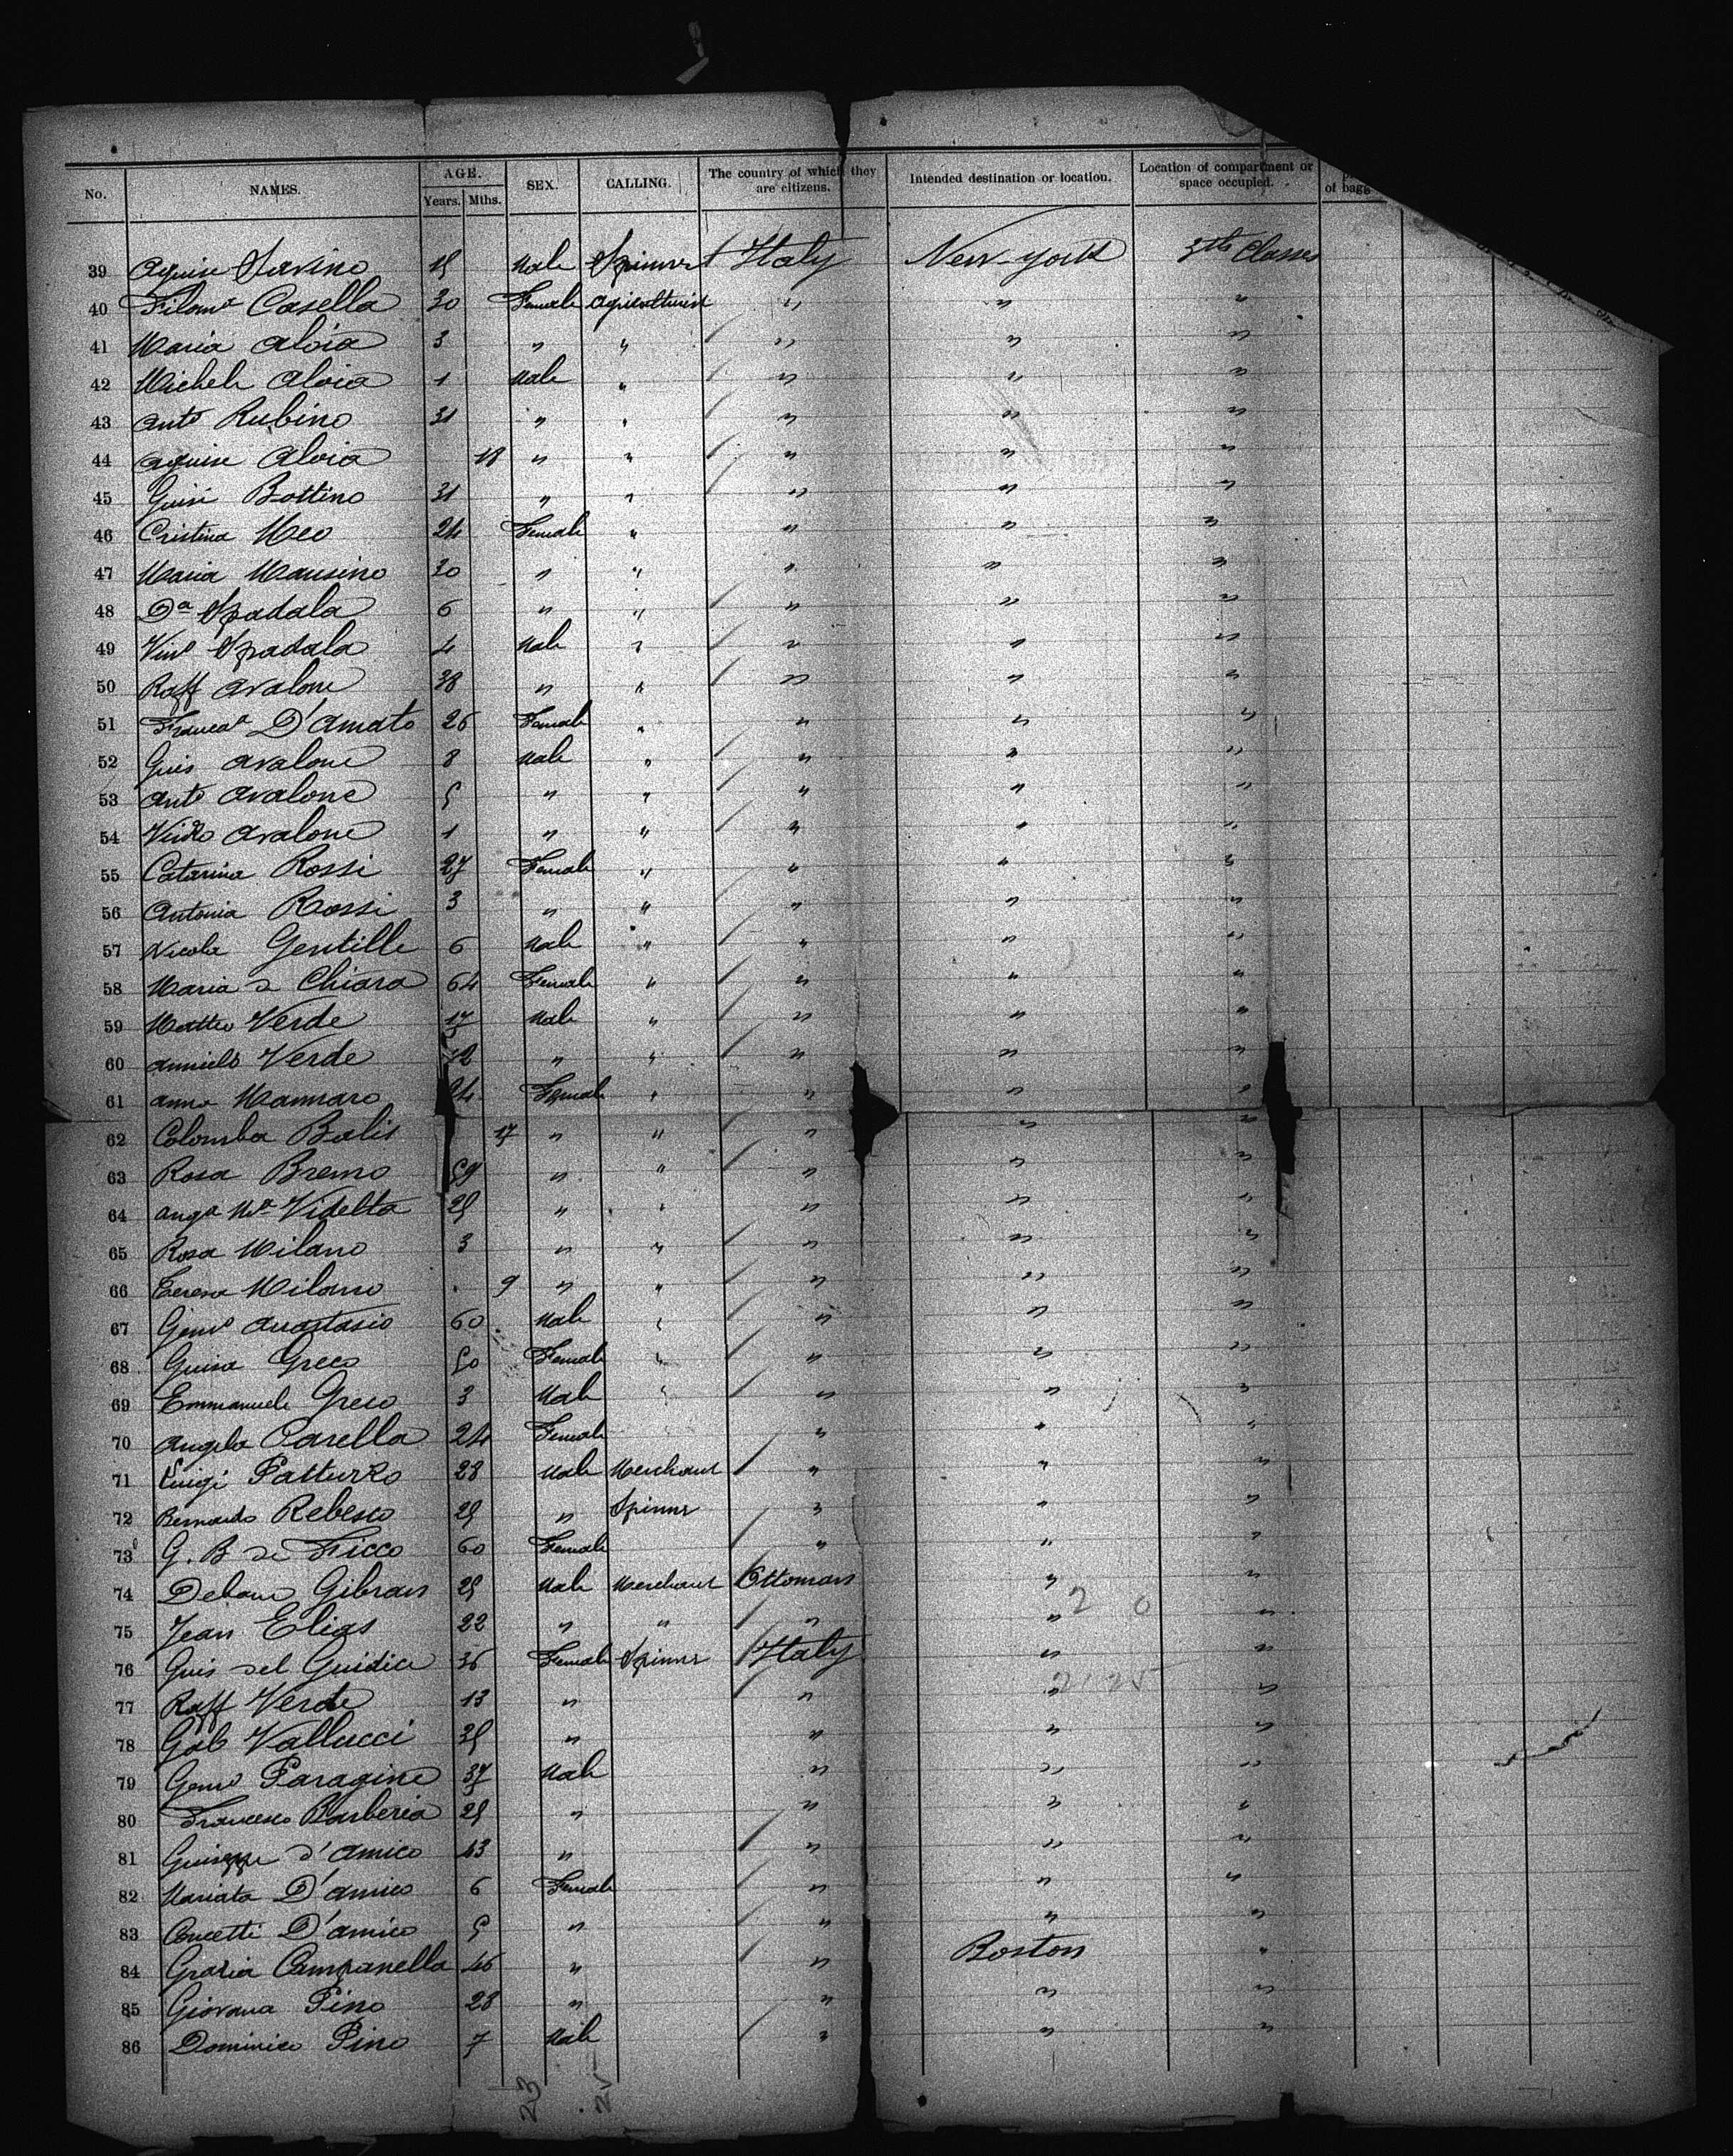 No. NAMES. AGE. Years. Mths. SEX. CALLING. The country of which they are citizens. Intended destination or location. Location of compartment or space occupied. of bags
39 Savino Male Spinner Italy New-york 3th Classes
40 Filomª Casella 30 Female Agriculturist " " "
41 Maria Aloia 3 " " " " "
42 Michele Aloia 1 Male " " " "
43 Antº Rubino 31 " " " " "
44 Aloia 18 " " " " "
45 Bottino 31 " " " " "
46 Cristina Meo 24 Female " " " "
47 Maria Mansino 30 " " " " "
48 Dª Spadala 6 " " " " "
49 Vinº Spadala 4 Male " " " "
50 Raff Avalone 38 " " " " "
51 Francª D'Amato 26 Female " " " "
52 Guis Avalone 8 Male " " " "
53 Antº Avalone 5 " " " " "
54 Avalone 1 " " " " "
55 Catarina Rossi 27 Female " " " "
56 Antonia Rossi 3 " " " " "
57 Nicola Gentille 6 Male " " " "
58 Maria de Chiara 64 Female " " " "
59 Matteo Verde 17 Male " " " "
60 Anniello Verde " " " " "
61 Anna Mannaro 24 Female " " " "
62 Colomba Balis 17 " " " " "
63 Rosa Bremo 59 " " " " "
64 Angª Mª Videlta 25 " " " " "
65 Rosa Milano 3 " " " " "
66 Teresa Milano 9 " " " " "
67 Genº Anastasio 60 Male " " " "
68 Greco 50 Female " " " "
69 Emmanuele Greco 3 Male " " " "
70 Angela Parella 24 Female " " "
71 Luigi Patturzo 28 Male Merchant " " "
72 Bernardo Rebesco 25 " Spinner " " "
73 G. B de Ficco 60 Female " " "
74 Gibran 25 Male Merchant Ottoman " "
75 Jean Elias 22 " " " " "
76 Guis del Guidice 36 Female Spinner Italy " "
77 Raff Verde 13 " " " "
78 Gab Vallucci 35 " " " "
79 Genº Paragine 37 Male " " "
80 Francesco Barberia 25 " " " "
81 Guiseppe d'Amico 43 " " " "
82 Mariata D'Amico 6 Female " " "
83 Concetti D'Amico 5 " " " "
84 Grazia Campanella 46 " " Boston "
85 Giovana Pino 28 " " " "
86 Dominico Pino 7 Male " " "
23